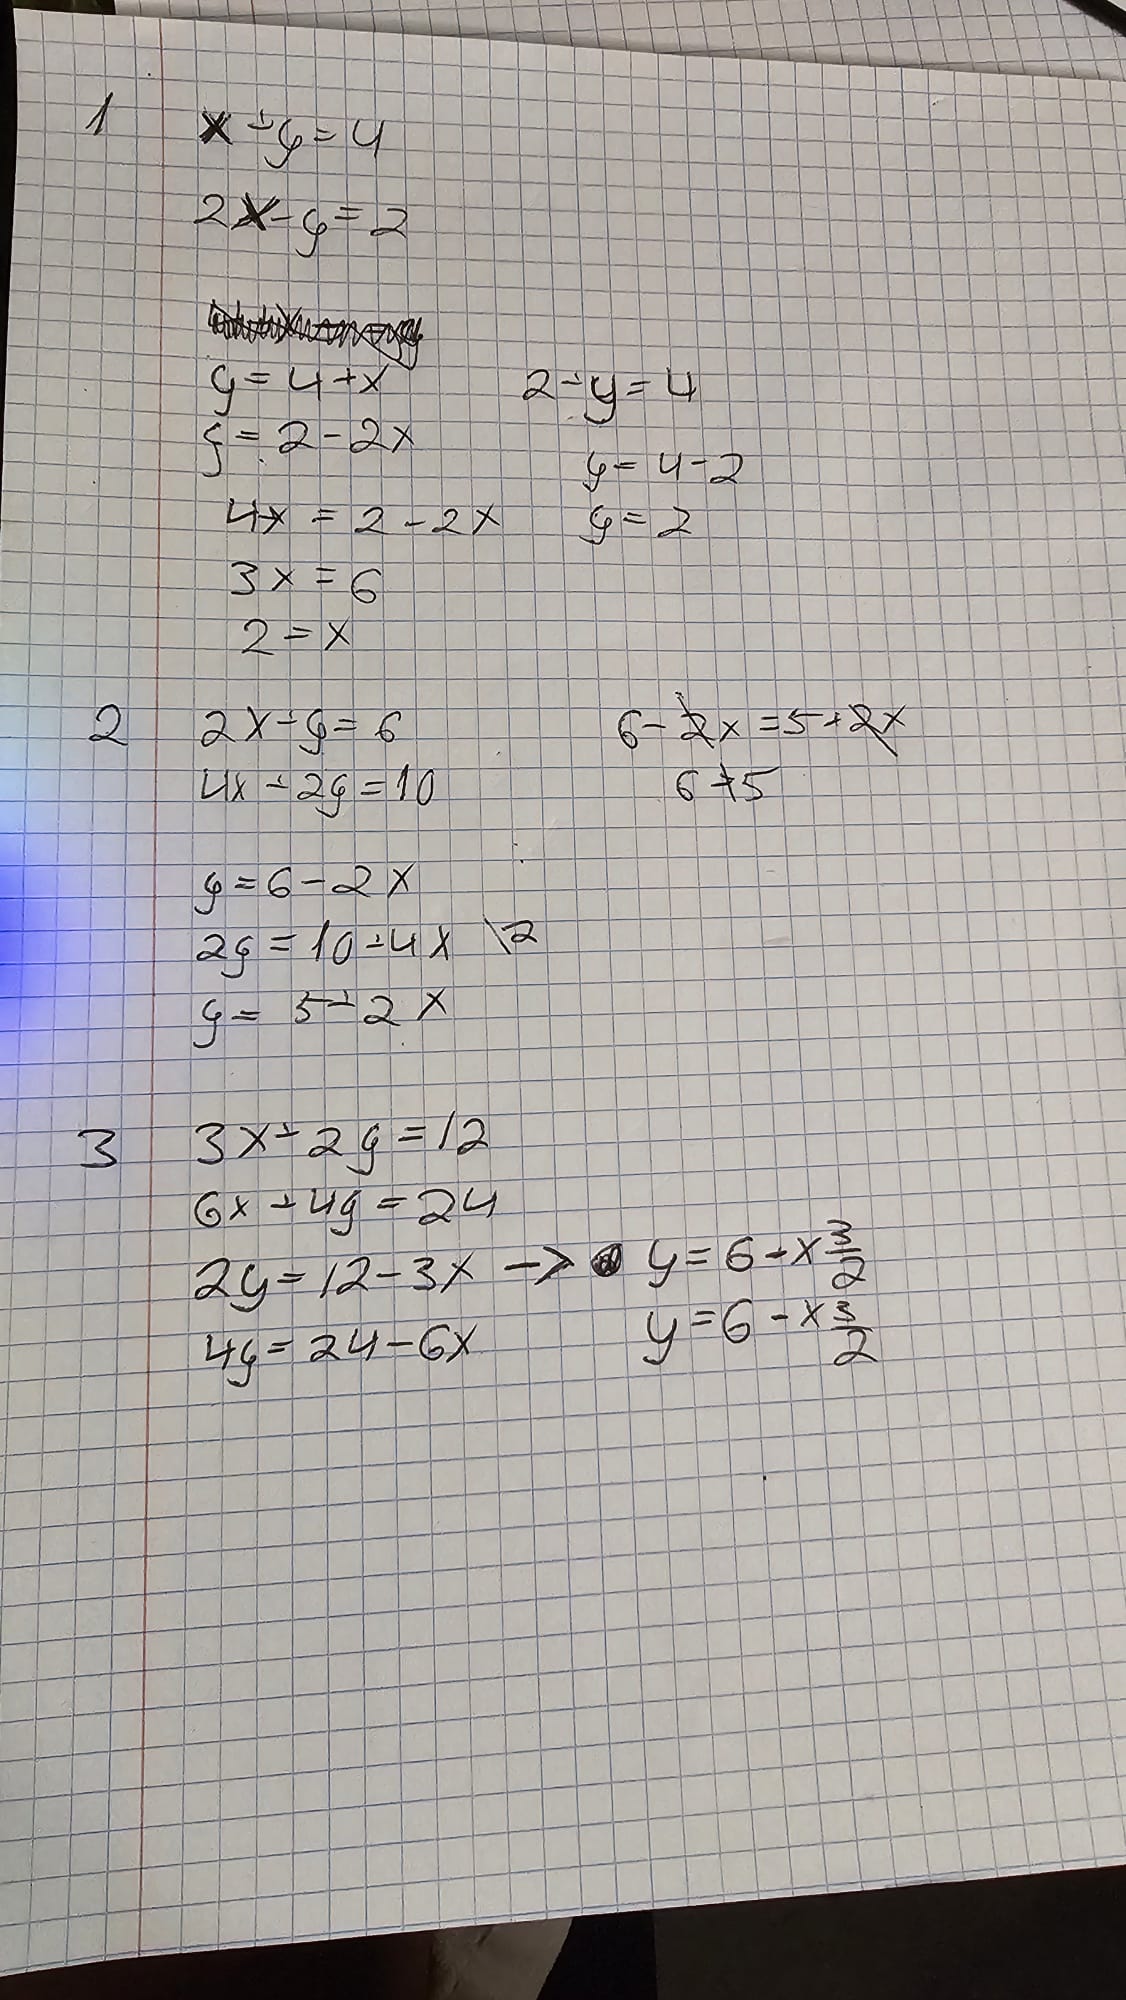 1
x+y=4
2x-y=2
y=4+x
y=2-2x
4x=2-2x
3x=6
2=x
2+y=4
y=4-2
y=2
2
2x+y=6
4x+2y=10
y=6-2x
2y=10-4x \2
y=5-2x
6-2x=5+2x
6≠5
3
3x+2y=12
6x+4y=24
2y=12-3x -> y=6-x3/2
4y=24-6x y=6-x3/2